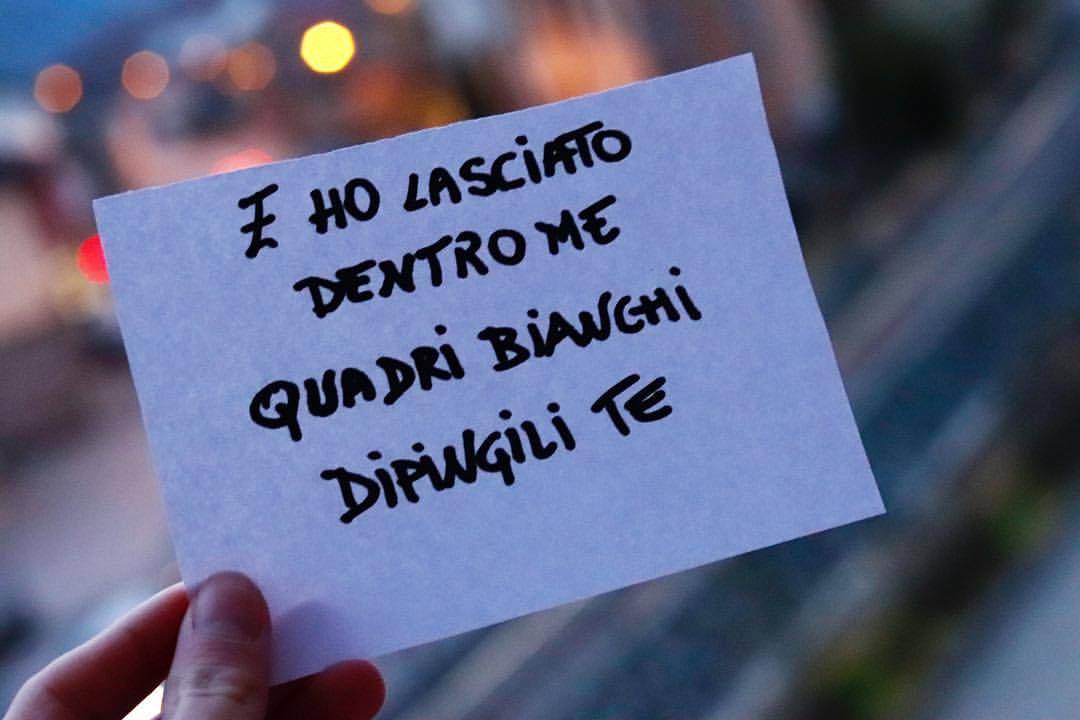 E HO LASCIATO
DENTRO ME
QUADRI BIANCHI
DIPINGILI TE